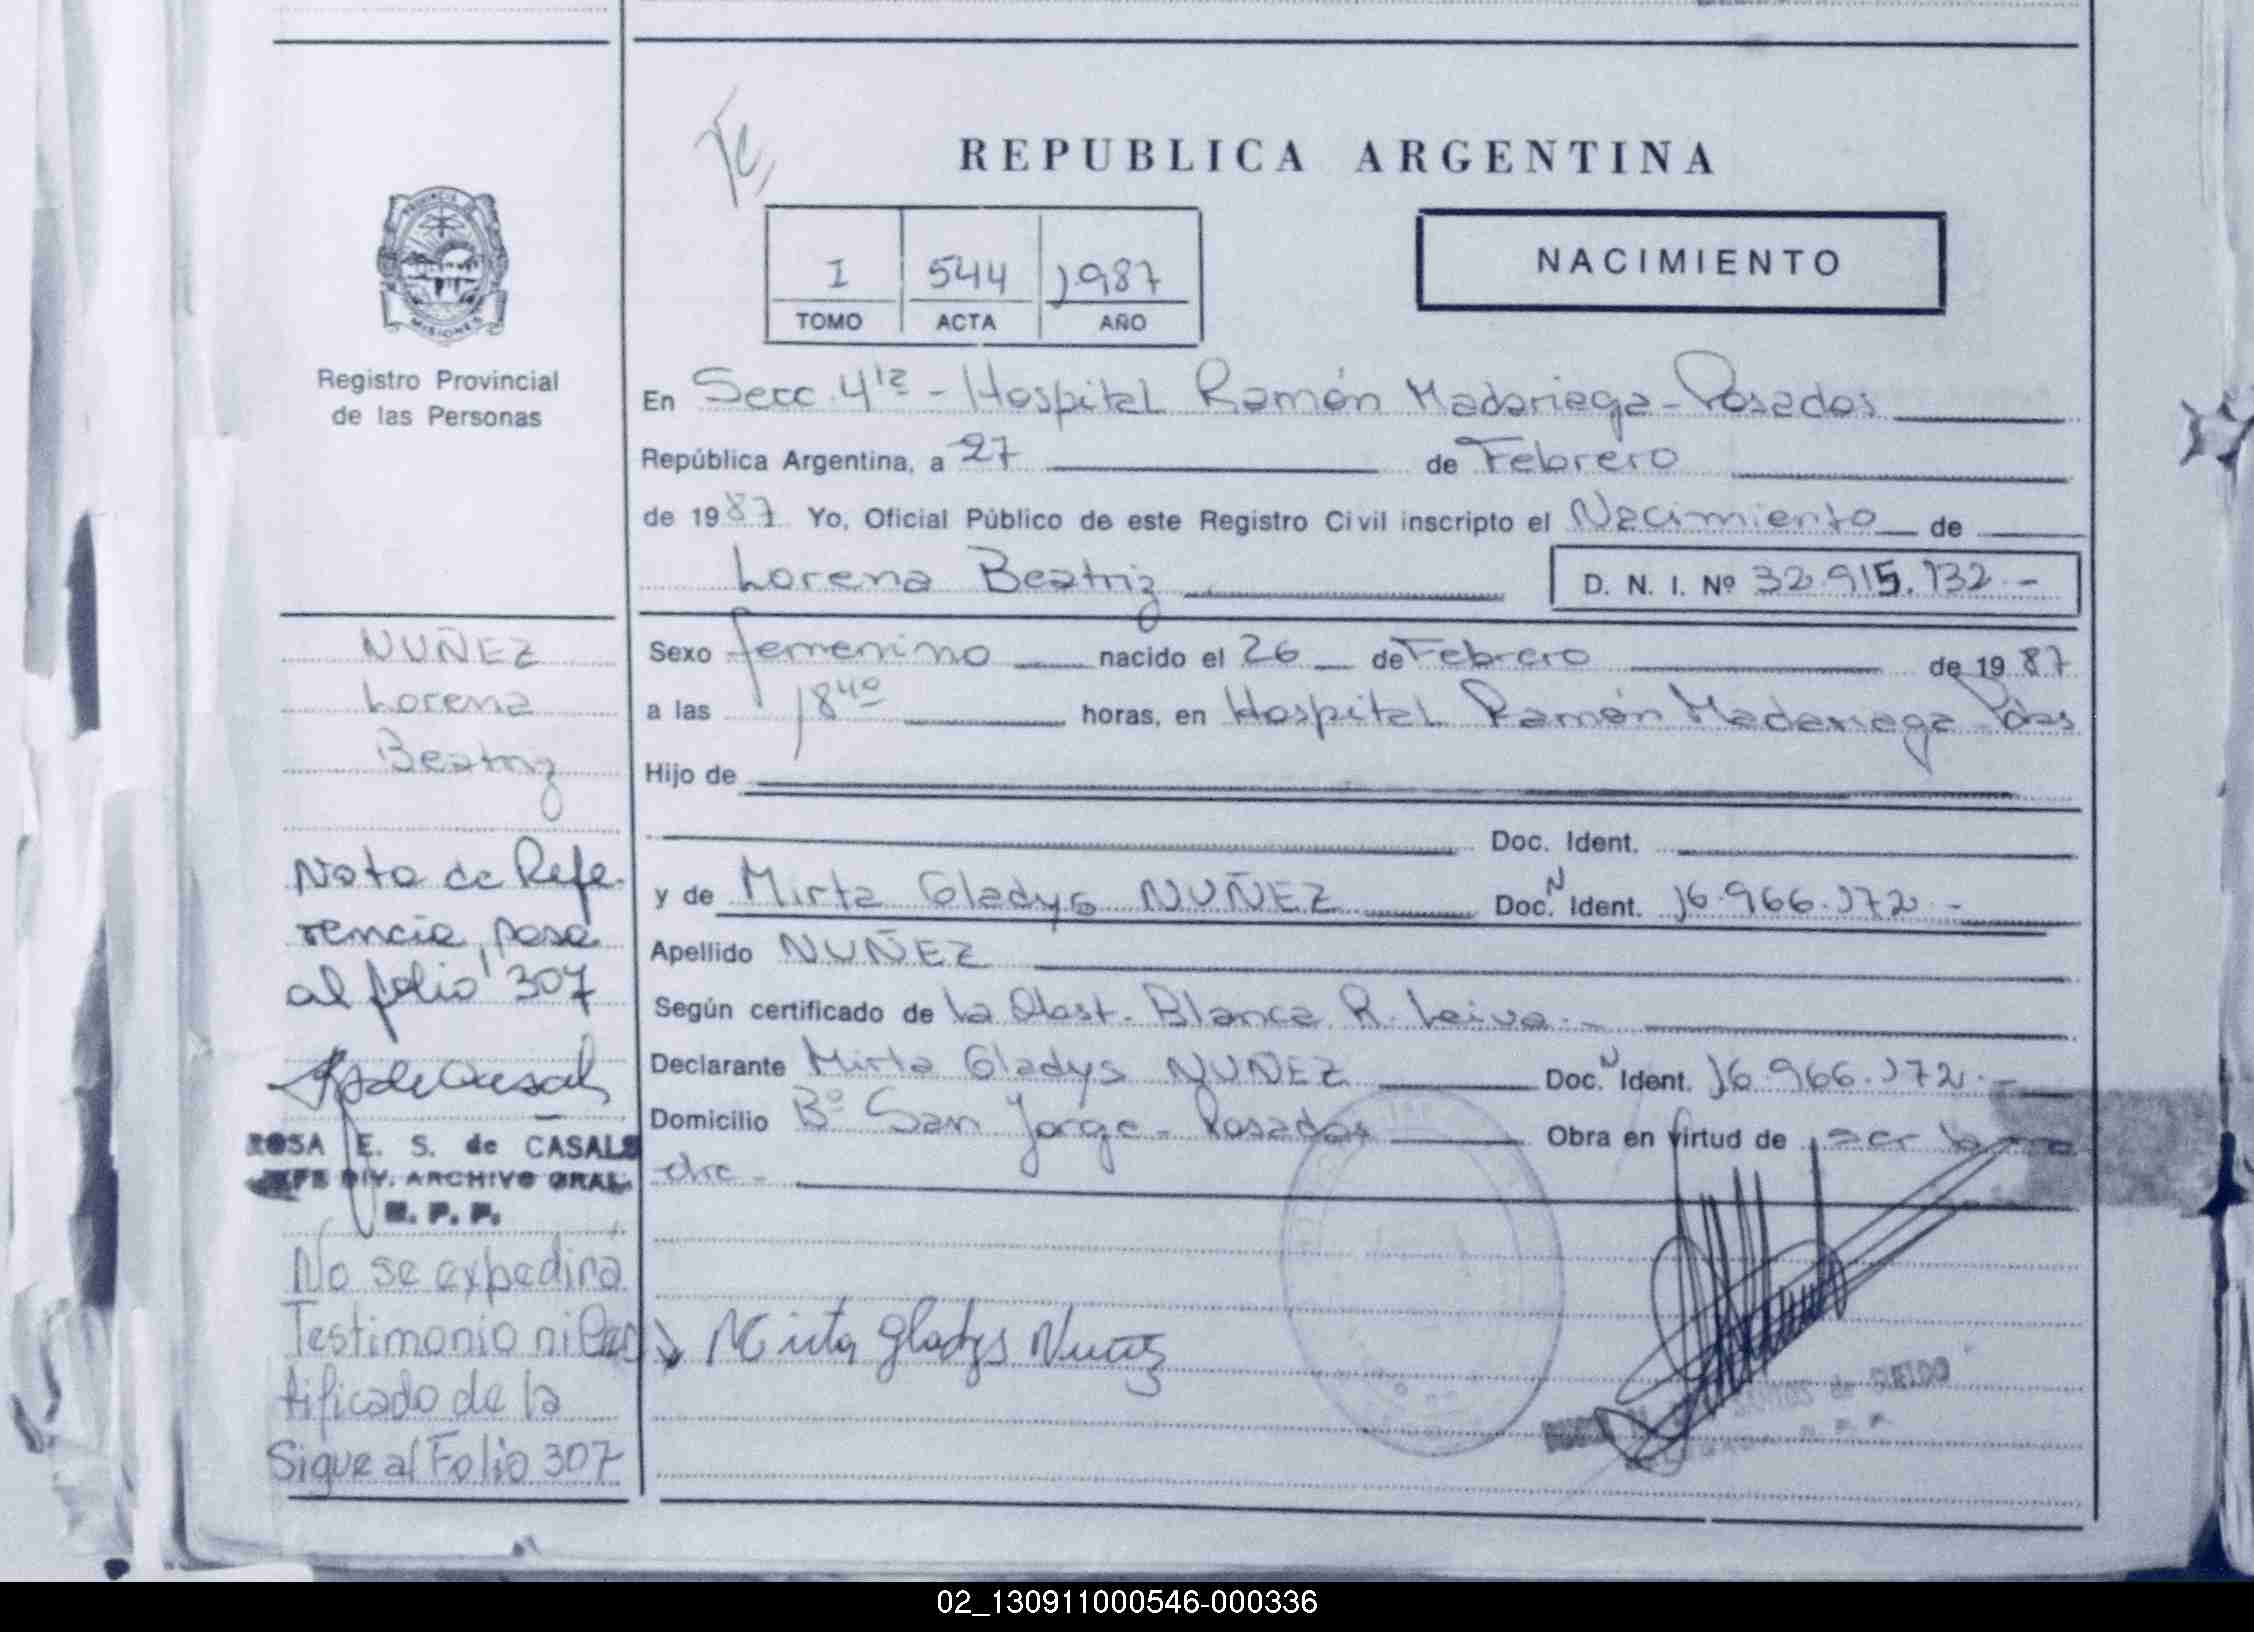 REPUBLICA ARGENTINA
PROVINCIA DE
MISIONES
Registro Provincial
de las Personas
I 544 1987
TOMO ACTA AÑO
NACIMIENTO
En Secc. 4ta - Hospital Ramón Madariaga - Posadas
República Argentina, a 27 de Febrero
de 1987 Yo, Oficial Público de este Registro Civil inscripto el Nacimiento de
Lorena Beatriz D. N. I. Nº 32.915.132.-
Sexo femenino nacido el 26 de Febrero de 1987
a las 18 40 horas, en Hospital Ramón Madariaga Pdas
Hijo de
Doc. Ident.
y de Mirta Gladys NUÑEZ Doc. N Ident. 16.966.172.-
Apellido NUÑEZ
Según certificado de la Obst. Blanca R. Leiva.-
Declarante Mirta Gladys NUÑEZ Doc. N Ident. 16.966.172.-
Domicilio Bº San Jorge - Posadas Obra en virtud de ser la ma
dre -
Mirta Gladys Nuñez
NUÑEZ
Lorena
Beatriz
Nota de Refe-
rencia, pasa
al folio 307
ROSA E. S. de CASALS
JEFE DIV. ARCHIVO GRAL.
R. P. P.
No se expedirá
Testimonio ni Cer
tificado de la
Sigue al Folio 307
02_130911000546-000336